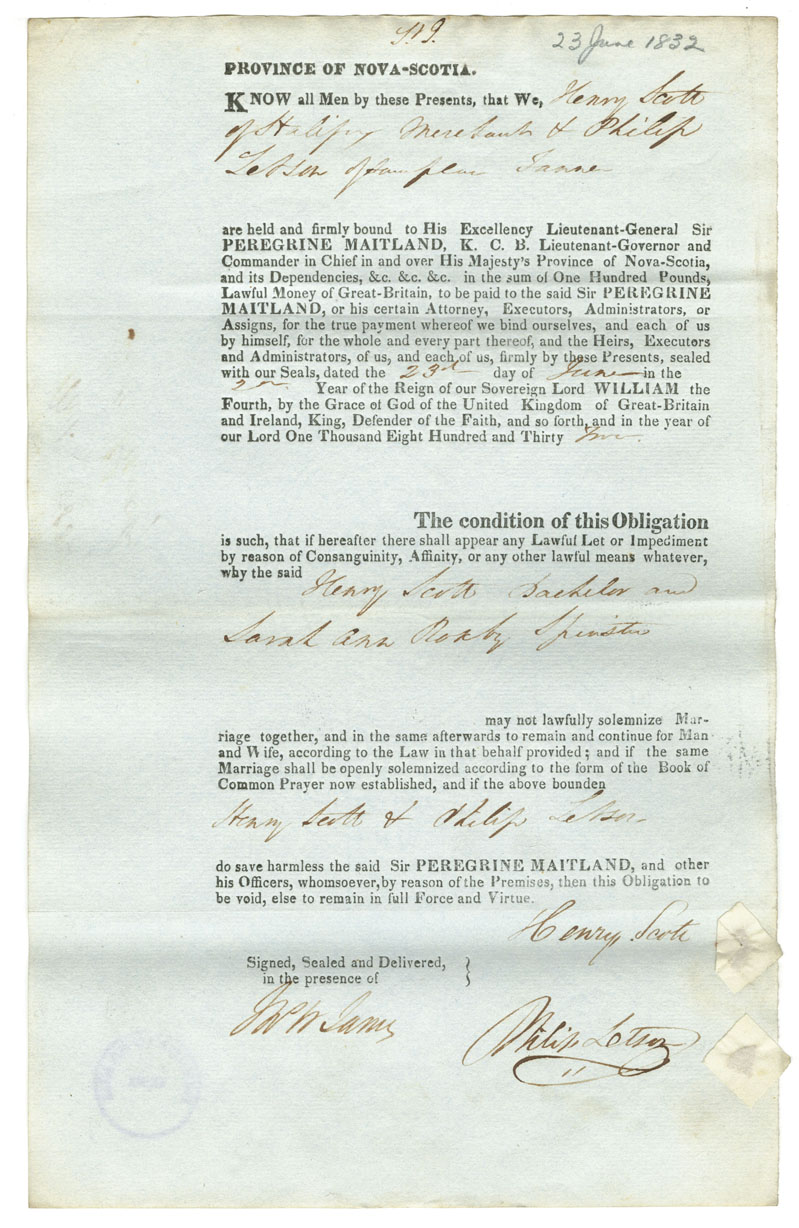 23 June 1832
PROVINCE OF NOVA-SCOTIA.
KNOW all Men by these Presents, that We, Henry Scott
of Halifax Merchant & Philip
Letson of same place Tanner
are held and firmly bound to His Excellency Lieutenant-General Sir
PEREGRINE MAITLAND, K. C. B. Lieutenant-Governor and
Commander in Chief in and over His Majesty's Province of Nova-Scotia,
and its Dependencies, &c. &c. &c. in the sum of One Hundred Pounds,
Lawful Money of Great-Britain, to be paid to the said Sir PEREGRINE
MAITLAND, or his certain Attorney, Executors, Administrators, or
Assigns, for the true payment whereof we bind ourselves, and each of us
by himself, for the whole and every part thereof, and the Heirs, Executors
and Administrators, of us, and each of us, firmly by these Presents, sealed
with our Seals, dated the 23rd day of June in the
2nd Year of the Reign of our Sovereign Lord WILLIAM the
Fourth, by the Grace of God of the United Kingdom of Great-Britain
and Ireland, King, Defender of the Faith, and so forth, and in the year of
our Lord One Thousand Eight Hundred and Thirty two.
The condition of this Obligation
is such, that if hereafter there shall appear any Lawful Let or Impediment
by reason of Consanguinity, Affinity, or any other lawful means whatever,
why the said
Henry Scott Bachelor and
Sarah Ann Roxby Spinster
may not lawfully solemnize Mar-
riage together, and in the same afterwards to remain and continue for Man
and Wife, according to the Law in that behalf provided; and if the same
Marriage shall be openly solemnized according to the form of the Book of
Common Prayer now established, and if the above bounden
Henry Scott & Philip Letson
do save harmless the said Sir PEREGRINE MAITLAND, and other
his Officers, whomsoever, by reason of the Premises, then this Obligation to
be void, else to remain in full Force and Virtue.
Henry Scott
Signed, Sealed and Delivered,
in the presence of
James
Philip Letson